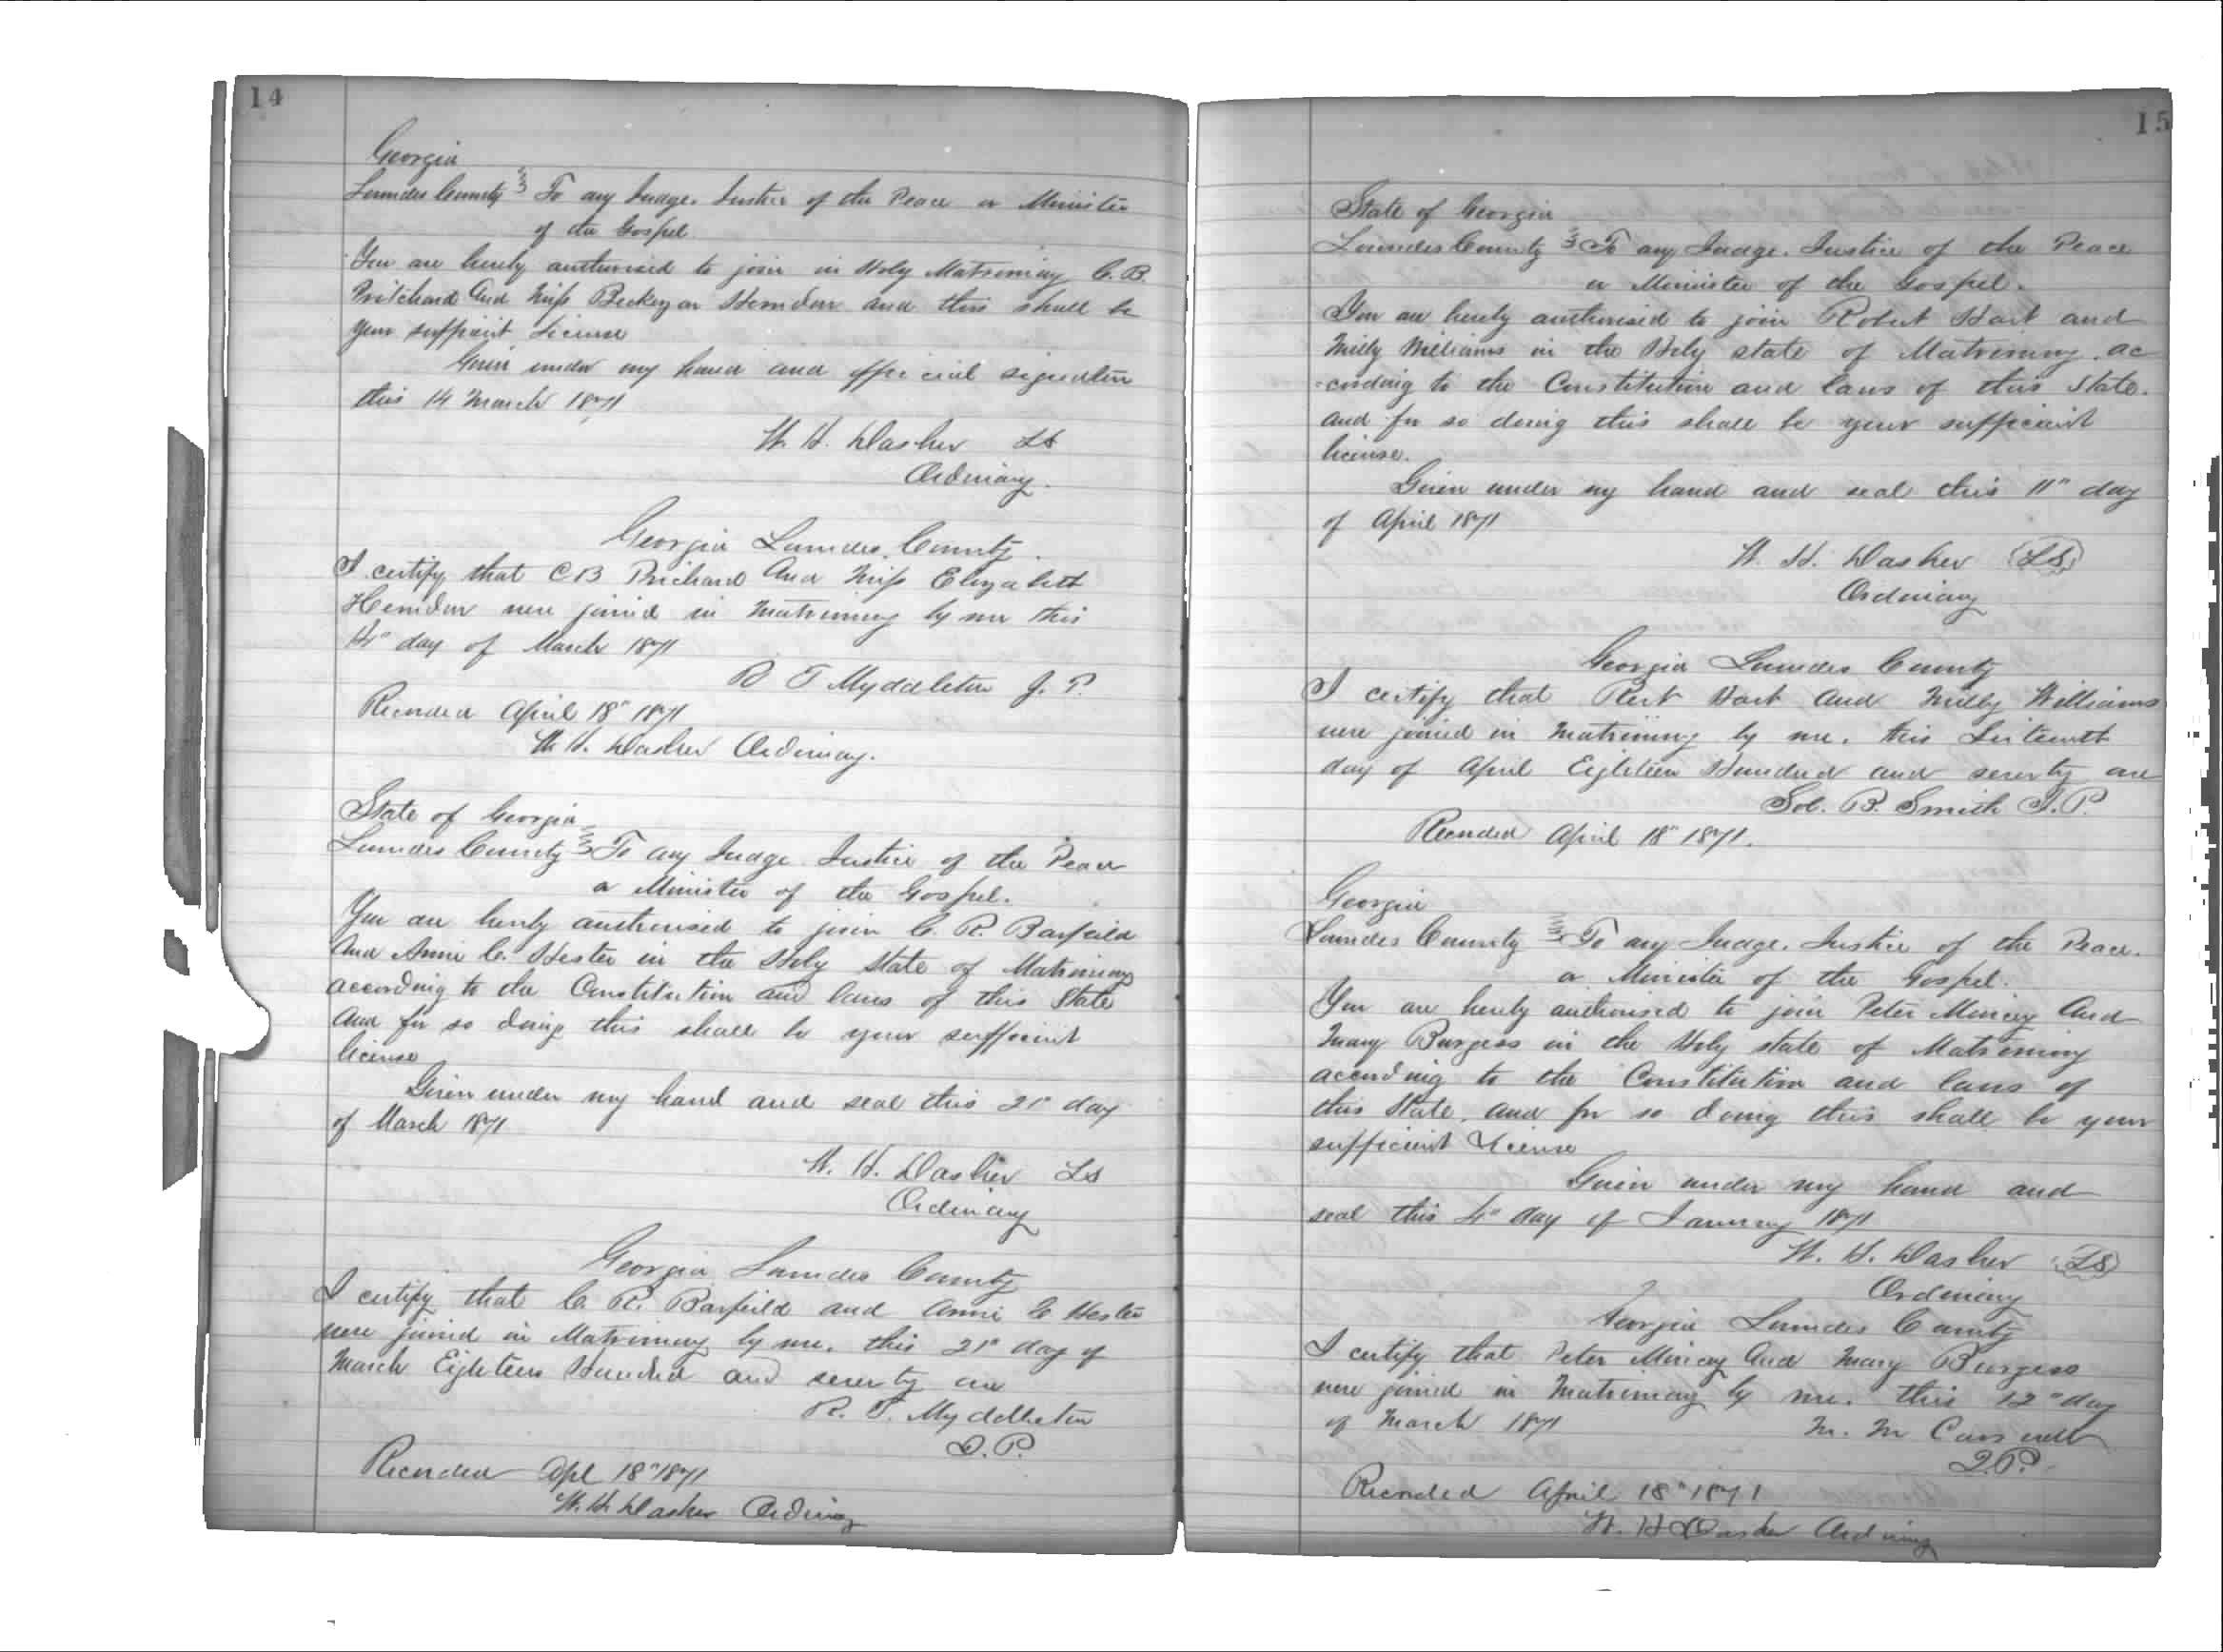 14
Georgia
Lowndes County To any Judge. Justice of the Peace or Minister
of the Gospel
You are hereby authorised to join in Holy Matrimony C. B.
Pritchard And Miss Herndon and this shall be
your sufficient License
Given under my hand and official signature
this 14 March 1871
W. H. Dasher LS
Ordinary.
Georgia Lowndes County.
I certify that C B Prichard And Miss Elizabeth
Herndon were joined in Matrimony by me this
14" day of March 1871
R T Myddleton J. P.
Recorded April 18" 1871
W. H. Dasher Ordinary.
State of Georgia
Lowndes County To any Judge Justice of the Peace
or Minister of the Gospel.
You are hereby authorised to join C. R. Barfeild
And Annie C. Hester in the Holy State of Matrimony
according to the Constitution and laws of this State
And for so doing this shall be your sufficient
license
Given under my hand and seal this 21" day
of March 1871
W. H. Dasher LS
Ordinary
Georgia Lowndes County
I certify that C. R. Barfeild and Annie C Hester
were joined in Matrimony by me. this 21" day of
March Eighteen Hundred and seventy one
R. T. Myddleton
J. P.
Recorded Apl 18" 1871
W. H. Dasher Ordinary
15
State of Georgia
Lowndes County To any Judge. Justice of the Peace
or Minister of the Gospel.
You are hereby authorised to join Robert Hart and
Milly Williams in the Holy state of Matrimony. ac
-cording to the Constitution and laws of this State.
And for so doing this shall be your sufficient
license.
Given under my hand and seal this 11" day
of April 1871
W. H. Dasher LS
Ordinary
Georgia Lowndes County
I certify that Robt Hart And Milly Williams
were joined in Matrimony by me. this
day of April Eighteen Hundred and seventy one
Sol. B. Smith J. P.
Recorded April 18" 1871.
Georgia
Lowndes County To any Judge. Justice of the Peace.
or Minister of the Gospel.
You are hereby authorised to join Peter Mincey And
Mary Burgess in the Holy state of Matrimony
according to the Constitution and laws of
this State. And for so doing this shall be your
sufficient License
Given under my hand and
seal this 4" day of January 1871
W. H. Dasher LS
Ordinary
Georgia Lowndes County
I certify that Peter Mincey And Mary Burgess
were joined in Matrimony by me. this 12" day
of March 1871 M. M
J. P.
Recorded April 18" 1871
W. H Dasher Ordinary